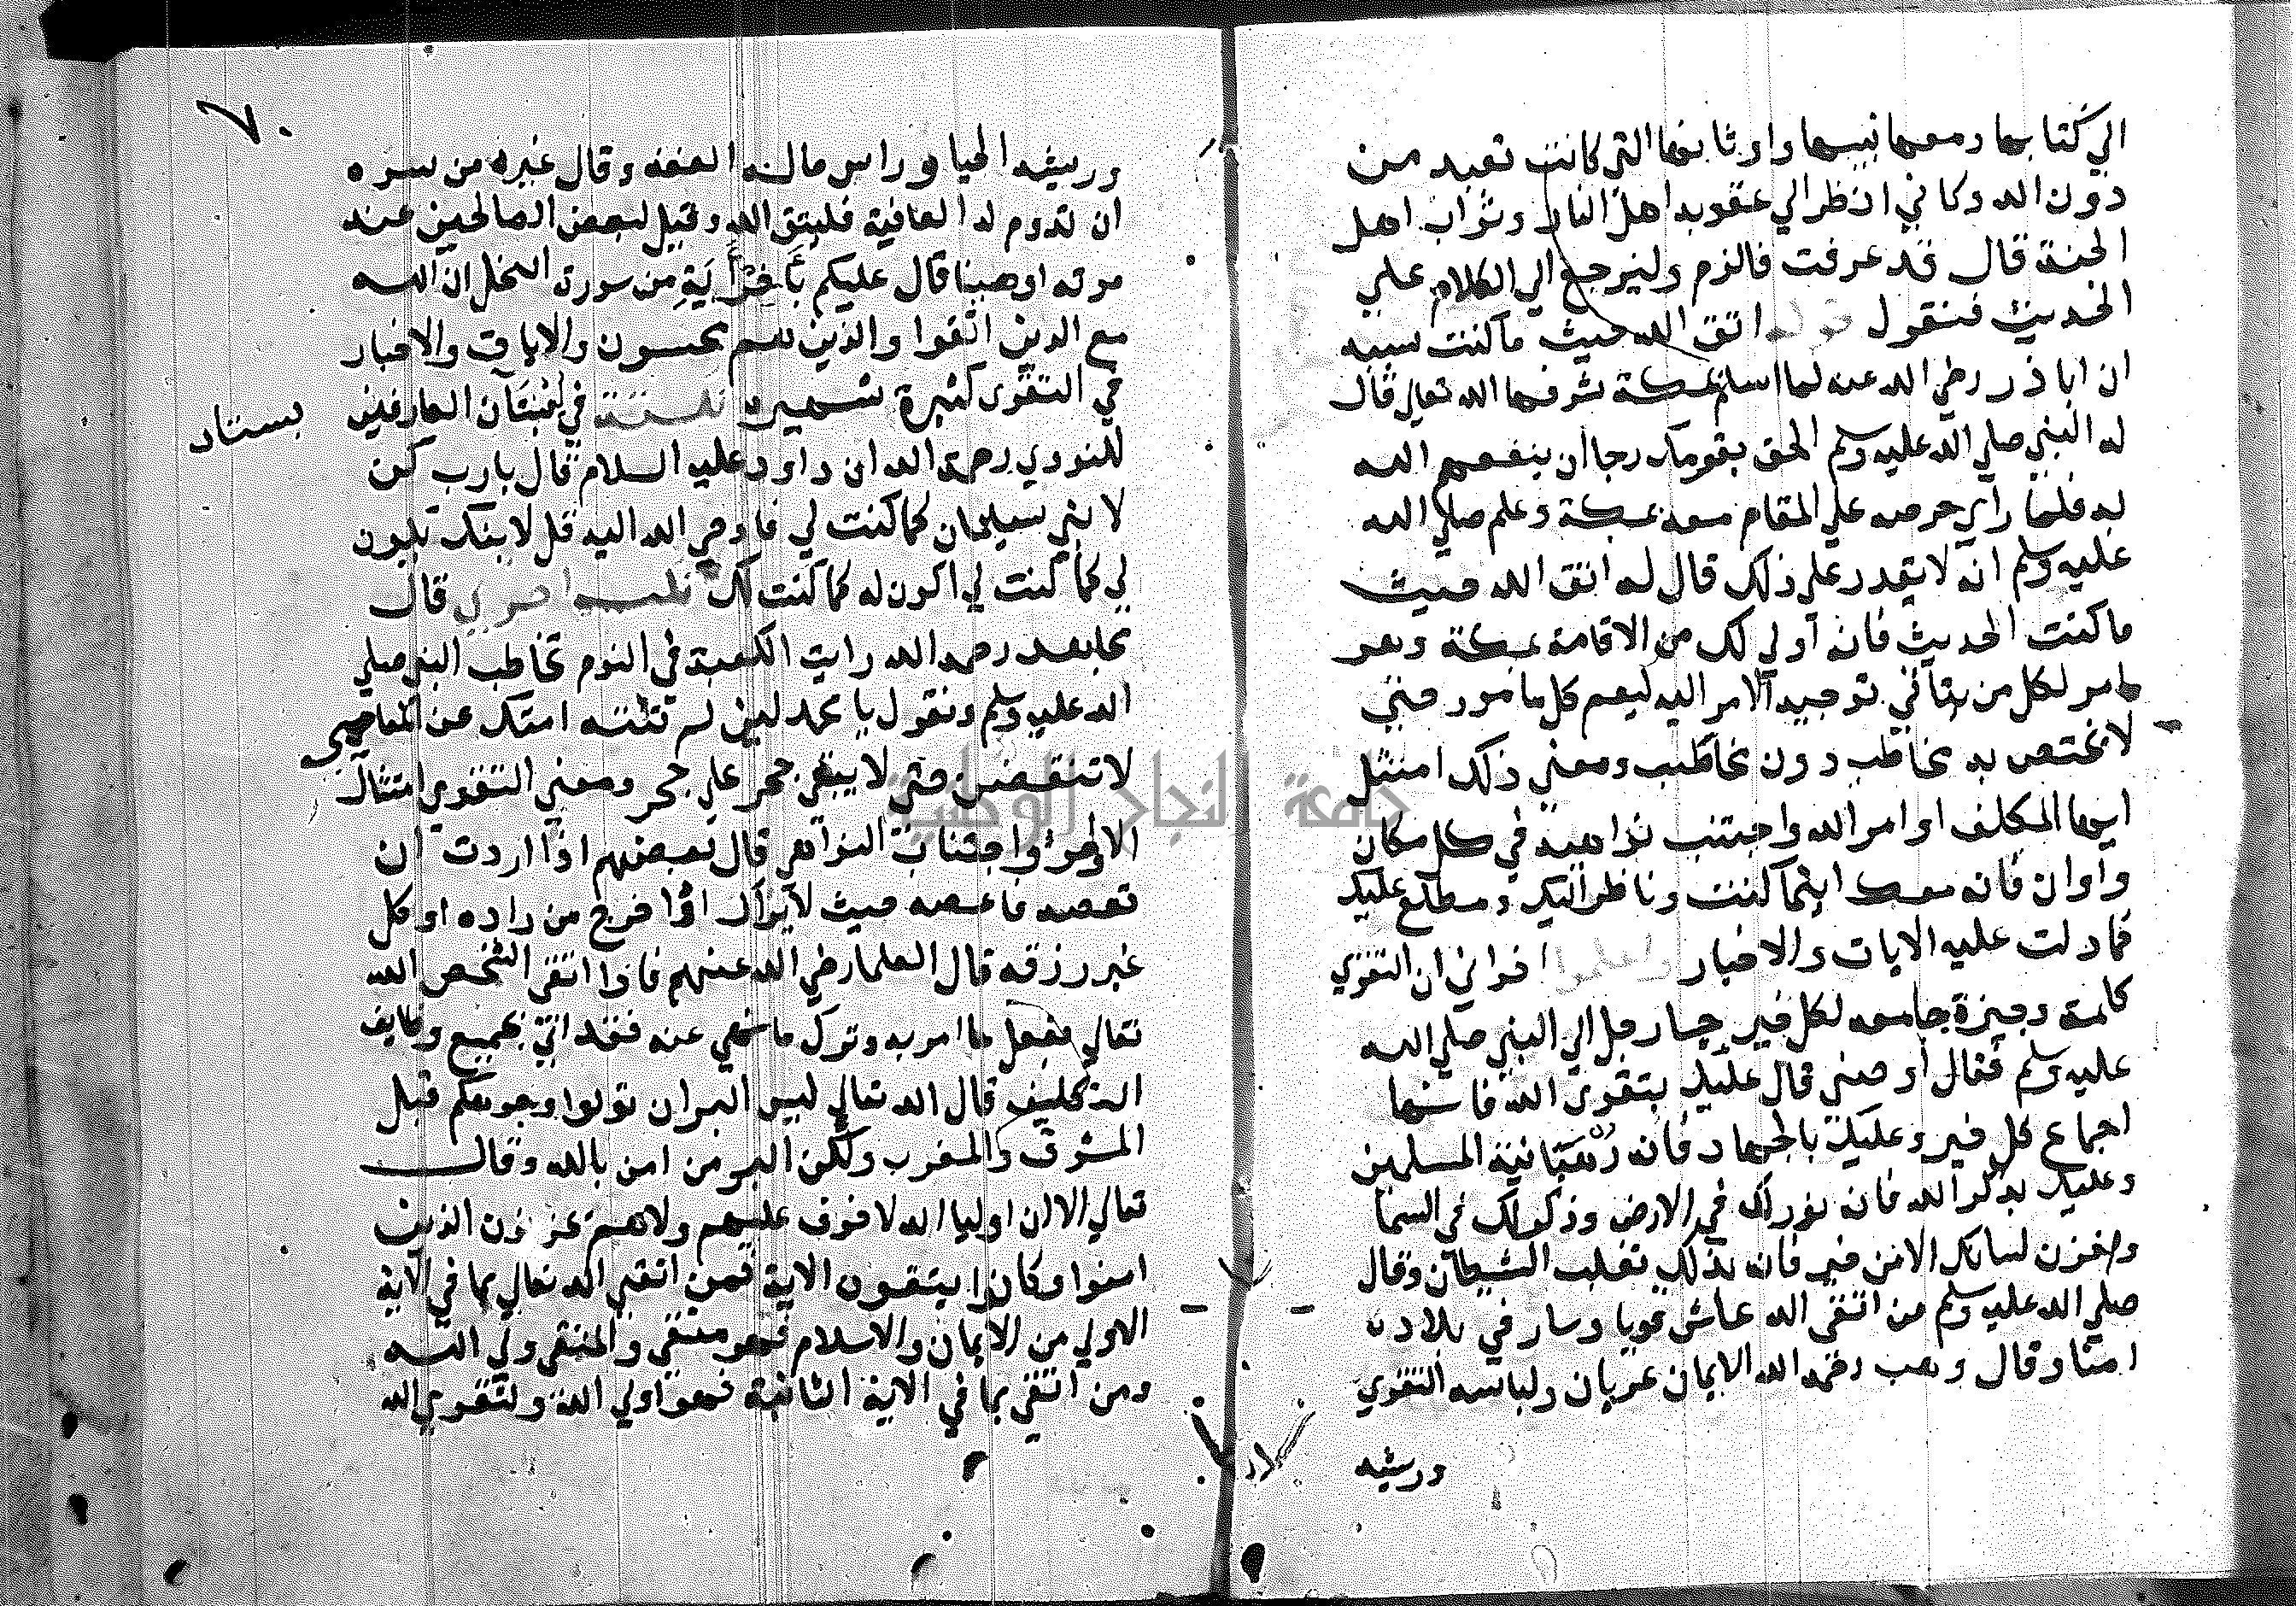 الي كتابها ومعها نبيها واوثانها التي كانت تعبد من
دون الله وكاني انظر الي عقوبه اهل النار وثواب اهل
الجنة قال قد عرفت فالزم ولنرجع الي الكلام علي
الحديث فنقول قوله اتق الله حيث ما كنت سببه
ان ابا ذر رضي الله عنه لما اسلم بمكة شرفها الله تعالي قال
له النبي صلي الله عليه وسلم الحق بقومك رجا ان ينفعهم الله
به فلما راي حرصه علي المقام معه بمكة وعلم صلي الله
عليه وسلم انه لا يقدر علي ذلك قال له اتق الله حيث
ما كنت الحديث فانه اولي لك من الاقامة بمكة وهو
امر لكل من يتاتي توجيه الامر اليه ليعم كل مامور حتي
لا يختص به مخاطب دون مخاطب ومعني ذلك امتثل
ايها المكلف اوامر الله واجتنب نواهيه في كل مكان
واوان فانه معك اينما كنت وناظر اليك ومطلع عليك
كما دلت عليه الايات والاخبار واعلموا اخواني ان التقوي
كلمة وجيزة جامعه لكل خير جا رجل الي النبي صلي الله
عليه وسلم فقال اوصني قال عليك بتقوى الله فانها
اجماع كل خير وعليك بالجهاد فانه رهبانية المسلمين
وعليك بذكر الله فانه نور لك في الارض وذكر لك في السما
واخزن لسانك الا من خير فانه بذلك تغلب الشيطان وقال
صلي الله عليه وسلم من اتقى الله عاش قويا وسار في بلاده
امنا وقال وهب رحمه الله الايمان عريان ولباسه التقوي
وريشه
٦٠
وريشه الحيا وراس ماله العفه وقال غيره من سره
ان تدوم له العافية فليتق الله وقيل لبعض الصالحين عند
موته اوصينا قال عليكم بأخر أية من سورة النحل ان الله
مع الذين اتقوا والذين هم محسنون والايات والاخبار
في التقوى كثيرة شهيره في بُستان العارفين
بستان
للنووي رحمة الله ان داود عليه السلام قال يارب كن
لابني سليمان كما كنت لي فاوحي الله اليه قل لابنك يكون
لي كما كنت لي اكون له كما كنت لك اخري قال
مجاهد رحمه الله رايت الكعبة في النوم تخاطب النبي صلي
الله عليه وسلم وتقول يا محمد لين لم تنته امتك عن المعاصي
لاتنقضن حتي لا يبقي حجر علي حجر ومعني التقوي امتثال
الاوامر واجتناب النواهي قال بعضهم اذا اردت ان
تعصه فاعصه حيث لا يراك او اخرج من داره او كل
غير رزقه قال العلما رضي الله عنهم فاذا اتقى الشخص الله
تعالي بفعل ما امر به وترك ما نهي عنه فقد اتي بجميع وظايف
التكليف قال الله تعالي ليس البر ان تولوا وجوهكم قبل
المشرق والمغرب ولكن البر من امن بالله وقال
تعالي الا ان اوليا الله لا خوف عليهم ولا هم يحزنون الذين
امنوا وكانوا يتقون الاية فمن اتقى الله تعالي بما في الاية
الاولي من الايمان والاسلام فهو متقي والمتقي ولي الله
ومن اتقي بما في الاية الثانية فهو اولي الله ولتقوي الله
جامعة النجاح الوطنية